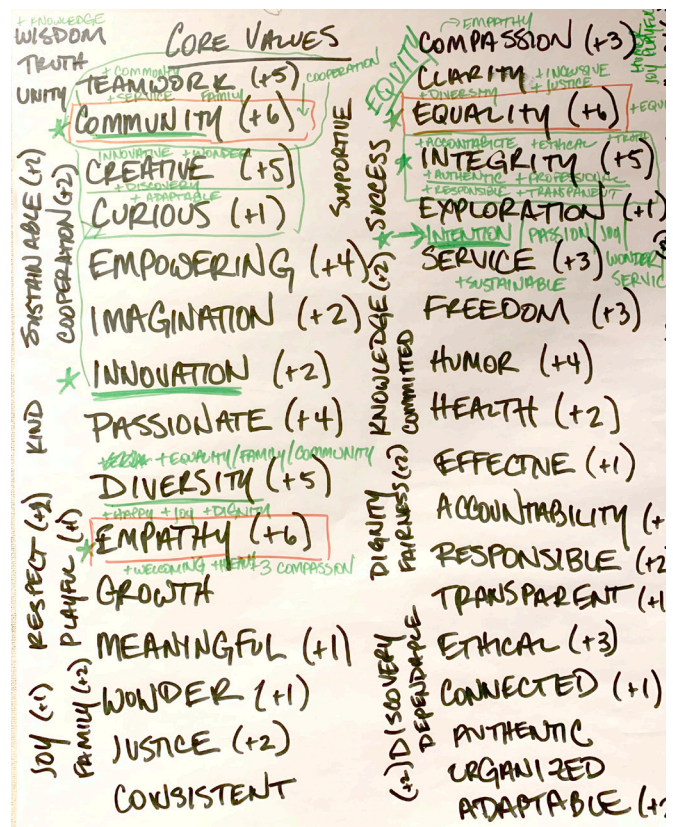 + KNOWLEDGE
WISDOM
TRUTH
UNITY
CORE VALUES
+ COMMUNITY
TEAMWORK (+5)
COOPERATION
+ SERVICE FAMILY
COMMUNITY (+6)
INNOVATIVE + WONDER
CREATIVE (+5)
+ DISCOVERY
+ ADAPTABLE
CURIOUS (+1)
EMPOWERING (+4)
IMAGINATION (+2)
INNOVATION (+2)
PASSIONATE (+4)
+ EQUALITY/FAMILY/COMMUNITY
DIVERSITY (+5)
+ HAPPY + JOY + DIGNITY
EMPATHY (+6)
+ WELCOMING +3 COMPASSION
GROWTH
MEANINGFUL (+1)
WONDER (+1)
JUSTICE (+2)
CONSISTENT
SUSTAINABLE (+2)
COOPERATION (+2)
KIND
RESPECT (+2)
PLAYFUL (+1)
JOY (+1)
FAMILY (+2)
SUPPORTIVE
SUCCESS
KNOWLEDGE (+2)
COMMITTED
DIGNITY
FAIRNESS (+2)
(+2) DISCOVERY
DEPENDABLE
EQUITY
EMPATHY
COMPASSION (+3)
JOY PLAYFUL
CLARITY + INCLUSIVE
+ JUSTICE
+ DIVERSITY
EQUALITY (+6)
+ EQUI
+ ACCOUNTABLTE + ETHICAL + TRUTH
INTEGRITY (+5)
+ AUTHENTIC + PROFESSIONAL
+ RESPONSIBLE + TRANSPARENT
EXPLORATION (+1)
INTENTION | PASSION | JOY |
SERVICE (+3) WONDER
+ SUSTAINABLE SERVIC
FREEDOM (+3)
HUMOR (+4)
HEALTH (+2)
EFFECTIVE (+1)
ACCOUNTABILITY (+
RESPONSIBLE (+2
TRANSPARENT (+1
ETHICAL (+3)
CONNECTED (+1)
AUTHENTIC
ORGANIZED
ADAPTABLE (+